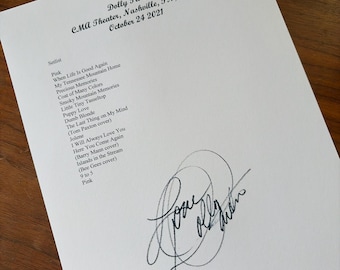 Dolly
CMA Theater, Nashville,
October 24 2021
Setlist
Pink
When Life Is Good Again
My Tennessee Mountain Home
Precious Memories
Coat of Many Colors
Smoky Mountain Memories
Little Tiny Tasseltop
Puppy Love
Dumb Blonde
The Last Thing on My Mind
(Tom Paxton cover)
Jolene
I Will Always Love You
Here You Come Again
(Barry Mann cover)
Islands in the Stream
(Bee Gees cover)
9 to 5
Pink
Love
Dolly
Parton